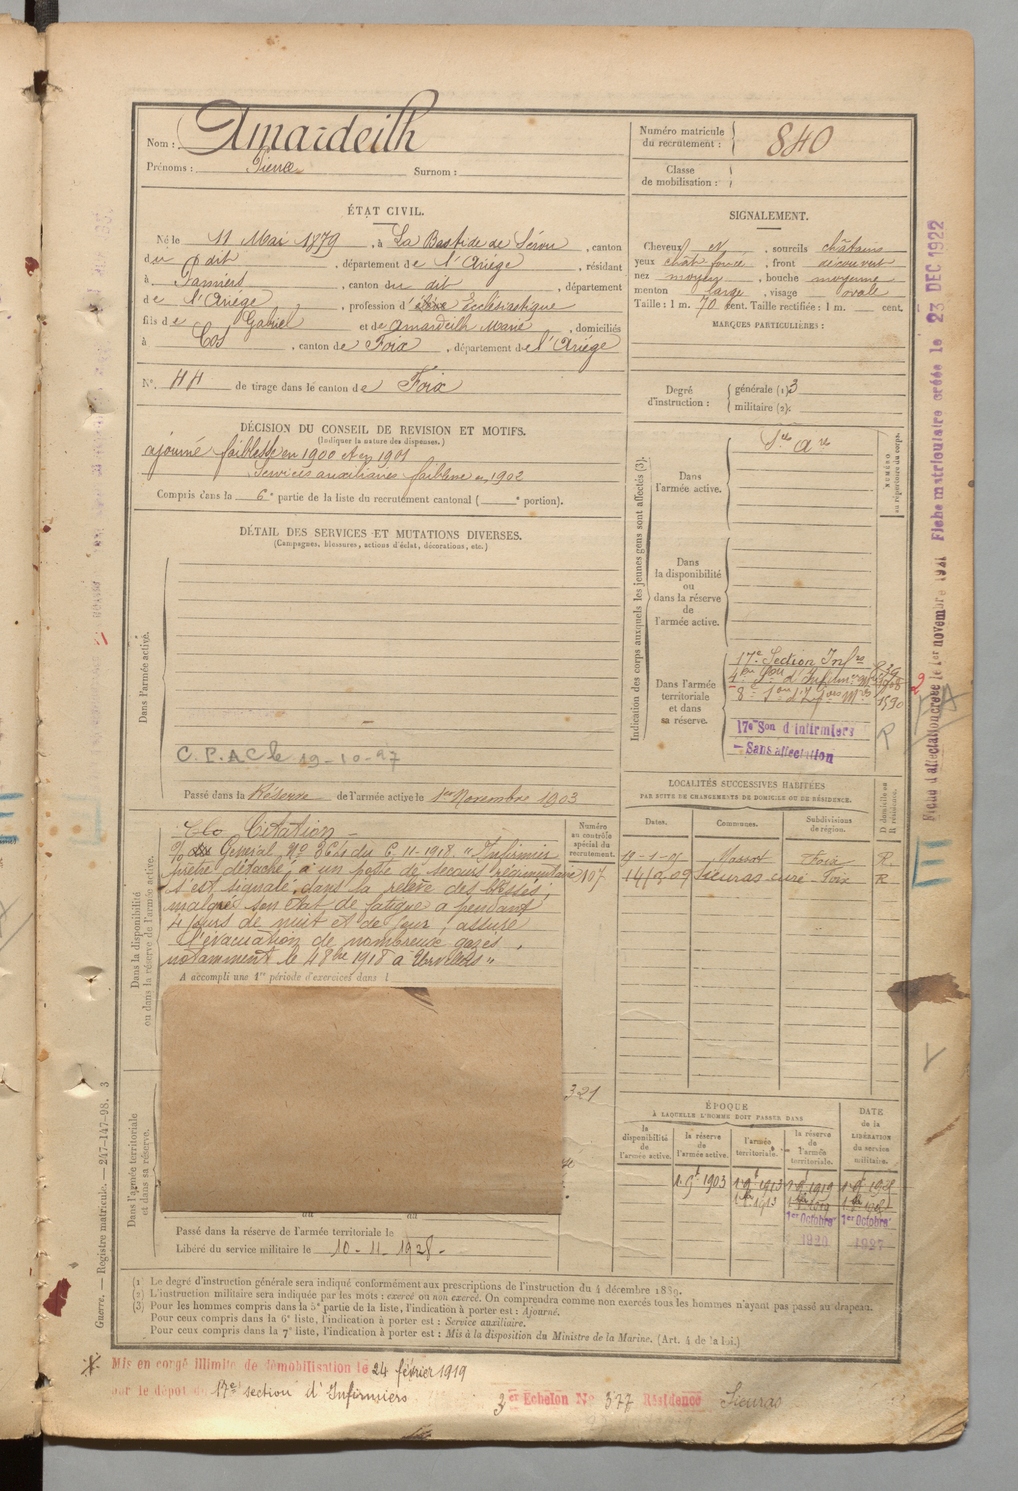 Nom : Amardeilh
Prénoms : Pierre Surnom :
Numéro matricule du recrutement : 840
Classe de mobilisation :
ÉTAT CIVIL.
Né le 11 Mai 1879, à La Bastide de Sérou, canton
du dit, département de l'Ariège, résidant
à Pamiers, canton du dit, département
de l'Ariège, profession d' Ecclésiastique
fils de Gabriel et de Amardeilh Marie, domiciliés
à Cos, canton de Foix, département de l'Ariège
N° 44 de tirage dans le canton de Foix
SIGNALEMENT.
Cheveux et, sourcils châtains
yeux chât foncé, front découvert
nez moyen, bouche moyenne
menton large, visage ovale
Taille : 1 m. 70 cent. Taille rectifiée : 1 m. cent.
MARQUES PARTICULIÈRES :
Degré d'instruction : générale (1) 3
militaire (2):
DÉCISION DU CONSEIL DE REVISION ET MOTIFS.
(Indiquer la nature des dispenses.)
ajourné faiblesse en 1900 et en 1901
Services auxiliaires faiblesse en 1902
Compris dans la 6e partie de la liste du recrutement cantonal ( e portion).
DÉTAIL DES SERVICES ET MUTATIONS DIVERSES.
(Campagnes, blessures, actions d'éclat, décorations, etc.)
Dans l'armée active.
C.P.A.C le 19-10-97
Passé dans la Réserve de l'armée active le 1er Novembre 1903
Indication des corps auxquels les jeunes gens sont affectés (3).
Dans l'armée active.
NUMÉRO au répertoire du corps.
Dans la disponibilité ou dans la réserve de l'armée active.
Dans l'armée territoriale et dans sa réserve.
17e Section Infres
17e Son d'infirmiers
- Sans affectation
LOCALITÉS SUCCESSIVES HABITÉES
PAR SUITE DE CHANGEMENTS DE DOMICILE OU DE RÉSIDENCE.
Dates. Communes. Subdivisions de région. D domicile ou R résidence.
19-1-05 Massat Foix R.
14/3.09 Sieuras curé Foix R
Dans la disponibilité ou dans la réserve de l'armée active.
Numéro au contrôle spécial du recrutement.
107
Citation -
Général No 364 du 6.11.1918. "Infirmier
prêtre détaché, à un poste de secours régimentaire
s'est signalé dans la relève des blessés,
malgré son état de fatigue a pendant
4 jours de nuit et de jour, assuré
l'évacuation de nombreux gazés,
notamment le 4 8bre 1918 à Urvillers"
A accompli une 1re période d'exercices dans l
321
Dans l'armée territoriale et dans sa réserve.
Passé dans la réserve de l'armée territoriale le
Libéré du service militaire le 10-11-1928-
ÉPOQUE
À LAQUELLE L'HOMME DOIT PASSER DANS
la disponibilité de l'armée active. la réserve de l'armée active. l'armée territoriale. la réserve de l'armée territoriale.
DATE de la LIBÉRATION du service militaire.
1903 1913 1919
1er Octobre 1er Octobre
1920 1927
(1) Le degré d'instruction générale sera indiqué conformément aux prescriptions de l'instruction du 4 décembre 1889.
(2) L'instruction militaire sera indiquée par les mots : exercé ou non exercé. On comprendra comme non exercés tous les hommes n'ayant pas passé au drapeau.
(3) Pour les hommes compris dans la 5e partie de la liste, l'indication à porter est : Ajourné.
Pour ceux compris dans la 6e liste, l'indication à porter est : Service auxiliaire.
Pour ceux compris dans la 7e liste, l'indication à porter est : Mis à la disposition du Ministre de la Marine. (Art. 4 de la loi.)
Guerre. — Registre matricule. — 247-147-98. 3
Mis en congé illimité de démobilisation le 24 février 1919
par le dépôt de 17e section d'Infirmiers
3er Echelon No 377 Résidence Sieuras
Fiche d'affectation créée le 1er novembre 1921 Fiche matriculaire créée le 23 DEC 1922